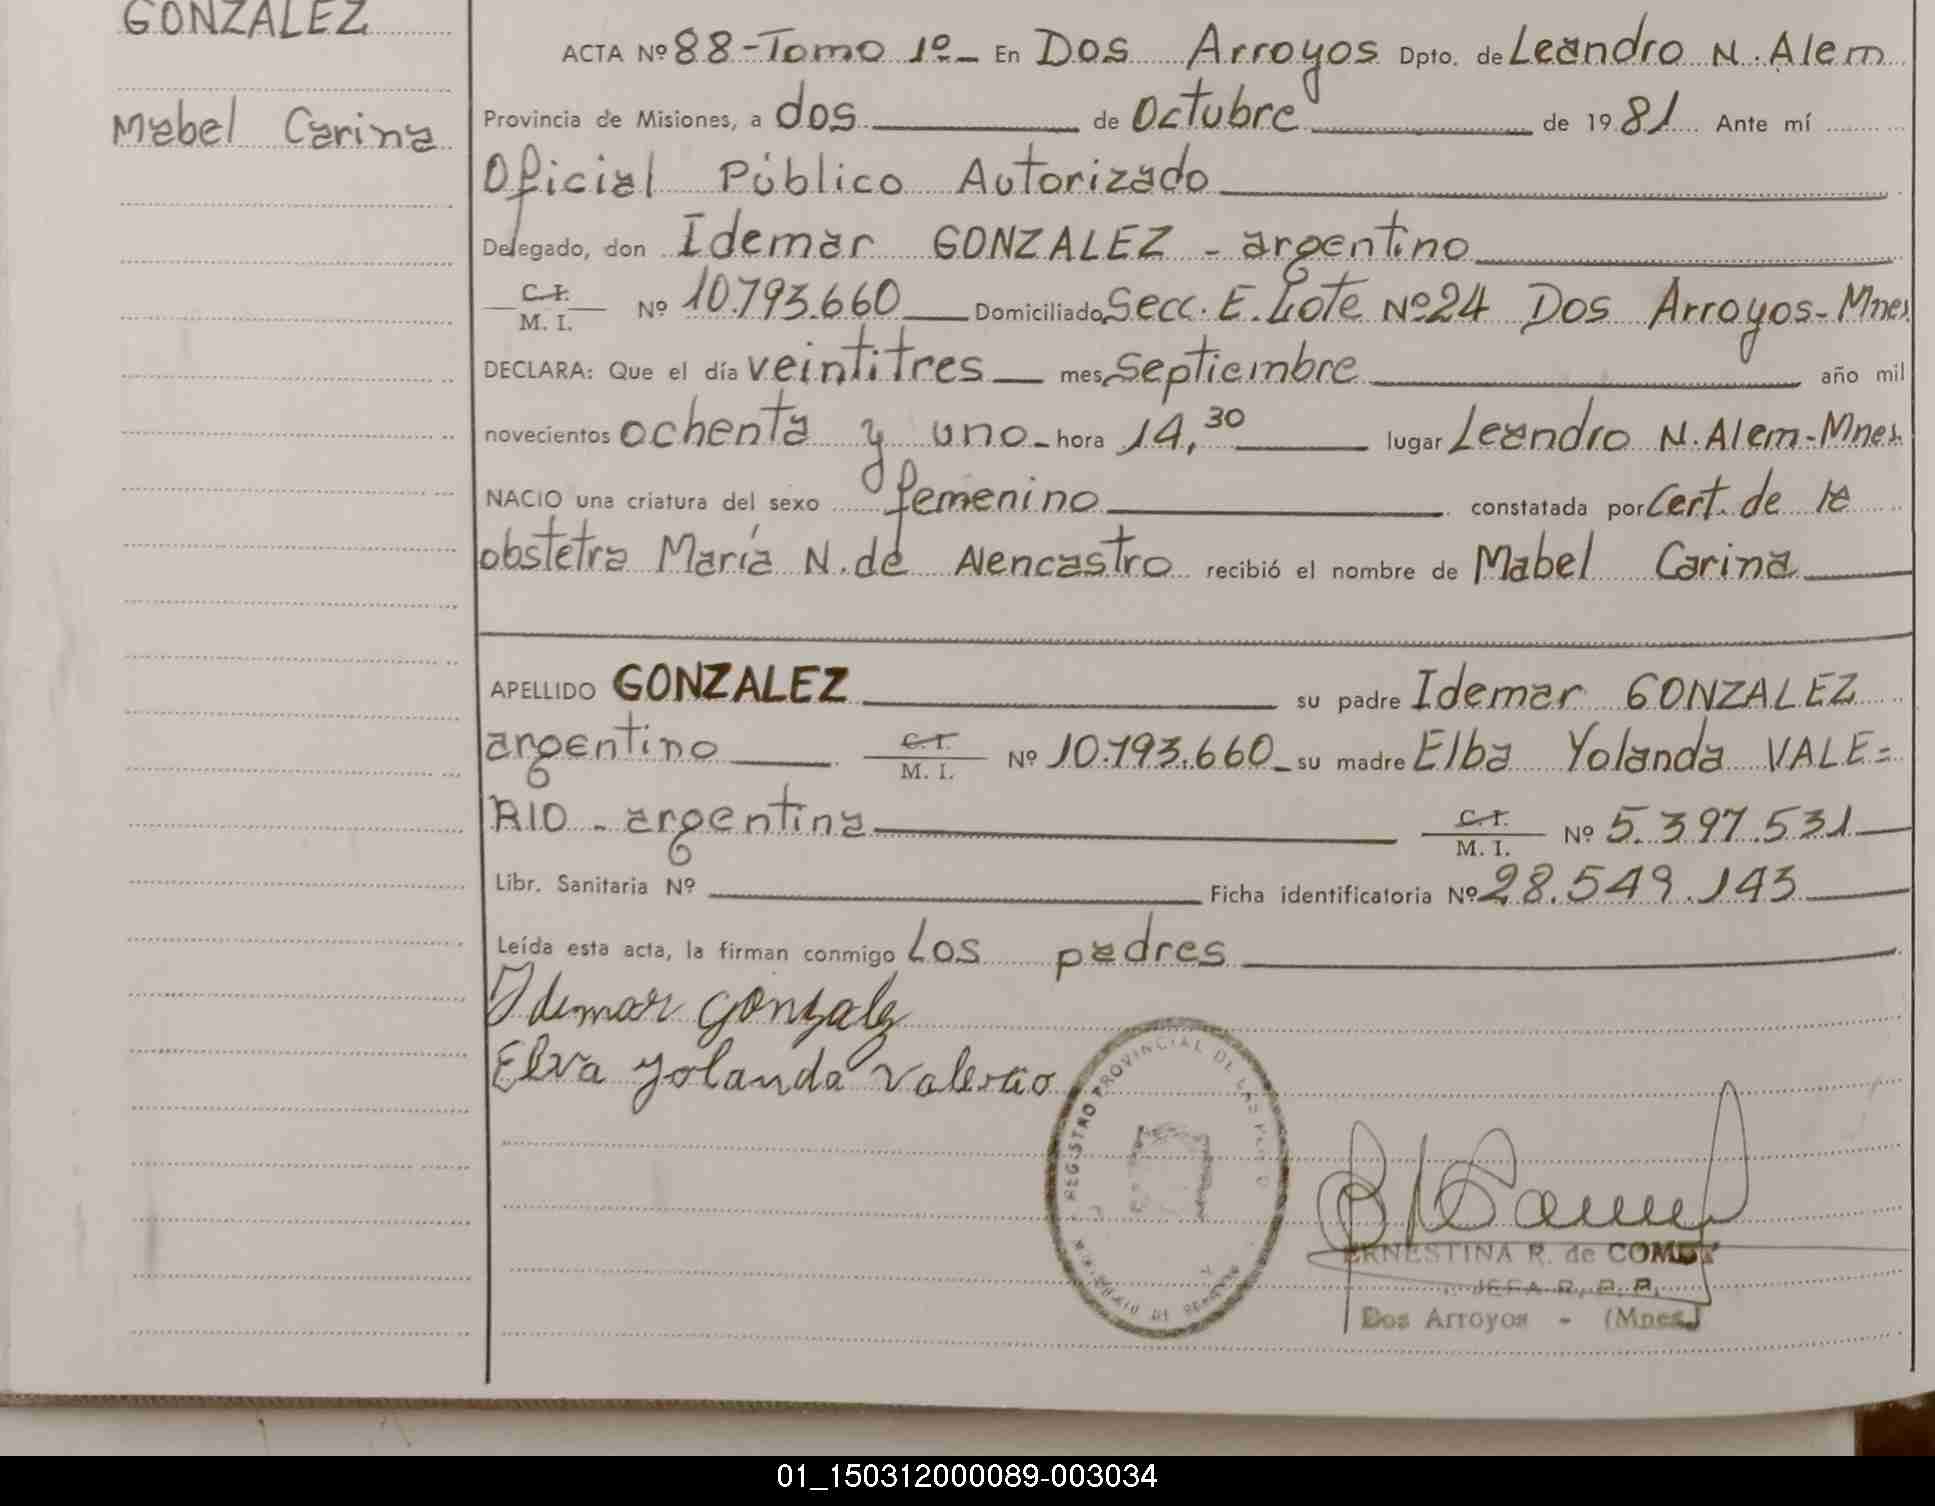 GONZALEZ
Mabel Carina
ACTA Nº 88-Tomo 1º- En Dos Arroyos Dpto. de Leandro N. Alem
Provincia de Misiones, a dos de Octubre de 1981 Ante mí
Oficial Público Autorizado
Delegado, don Idemar GONZALEZ - argentino
C.I. M. I. Nº 10.793.660 Domiciliado Secc. E. Lote Nº24 Dos Arroyos-Mnes.
DECLARA: Que el día veintitres mes Septiembre año mil
novecientos ochenta y uno- hora 14,30 lugar Leandro N. Alem-Mnes.
NACIO una criatura del sexo femenino constatada por Cert. de la
obstetra María N. de Alencastro recibió el nombre de Mabel Carina
APELLIDO GONZALEZ su padre Idemar GONZALEZ
argentino C.I. M. I. Nº 10.793.660- su madre Elba Yolanda VALE=
RIO - argentina C.I. M. I. Nº 5.397.531
Libr. Sanitaria Nº Ficha identificatoria Nº 28.549.143
Leída esta acta, la firman conmigo Los padres
Idemar Gonzalez
Elva Yolanda Valerio
REGISTRO PROVINCIAL DE LAS
ERNESTINA R. de COMES
JEFA R. P. P.
Dos Arroyos - (Mnes.)
01_150312000089-003034